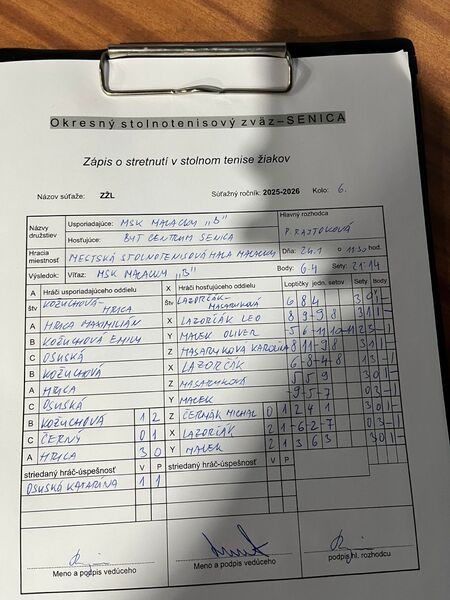 Okresný stolnotenisový zväz – SENICA
Zápis o stretnutí v stolnom tenise žiakov
Názov súťaže: ZŽL Súťažný ročník: 2025-2026 Kolo: 6.
Názvy družstiev Usporiadajúce: MSK MALACKY "B" Hlavný rozhodca
Hosťujúce: BYT CENTRUM SENICA P. RAJTOKOVÁ
Hracia miestnosť MESTSKÁ STOLNOTENISOVÁ HALA MALACKY Dňa: 24.1 o 1130 hod
Výsledok: Víťaz: MSK MALACKY "B" Body: 6-4 Sety: 21-14
A Hráči usporiadajúceho X Hráči hosťujúceho oddielu Loptičky jedn. setov Sety Body
štv KOŽUCHOVÁ- HRICA štv LAZORČÁK- MASARYKOVÁ 6 8 4
A HRICA MAXIMILIÁN X LAZORČÁK LEO 8 9 -9 8 3 1 1 -
B KOŽUCHOVÁ EMILY Y MALEK OLIVER
C OSUSKÁ Z MASARYKOVÁ KAROLÍNA 8 11 -9 8 3 1 1 -
B KOŽUCHOVÁ X LAZORČÁK 6 -8 -4 -8 1 3 - 1
A HRICA Z MASARYKOVÁ 5 5 9
C OSUSKÁ Y MALEK -9 -5 -7 0 3 - 1
B KOŽUCHOVÁ 1 2 Z ČERMÁK MICHAL 0 1 2 4 1 3 0 1 -
C ČERNÝ 0 1 X LAZORČÁK 2 1 -6 -2 -7 0 3 - 1
A HRICA 3 0 Y MALEK 2 1 3 6 3 3 0 1 -
striedaný hráč-úspešnosť V P striedaný hráč-úspešnosť V P
OSUSKÁ KATARÍNA 1 1
Meno a podpis vedúceho Meno a podpis vedúceho podpis hl. rozhodcu